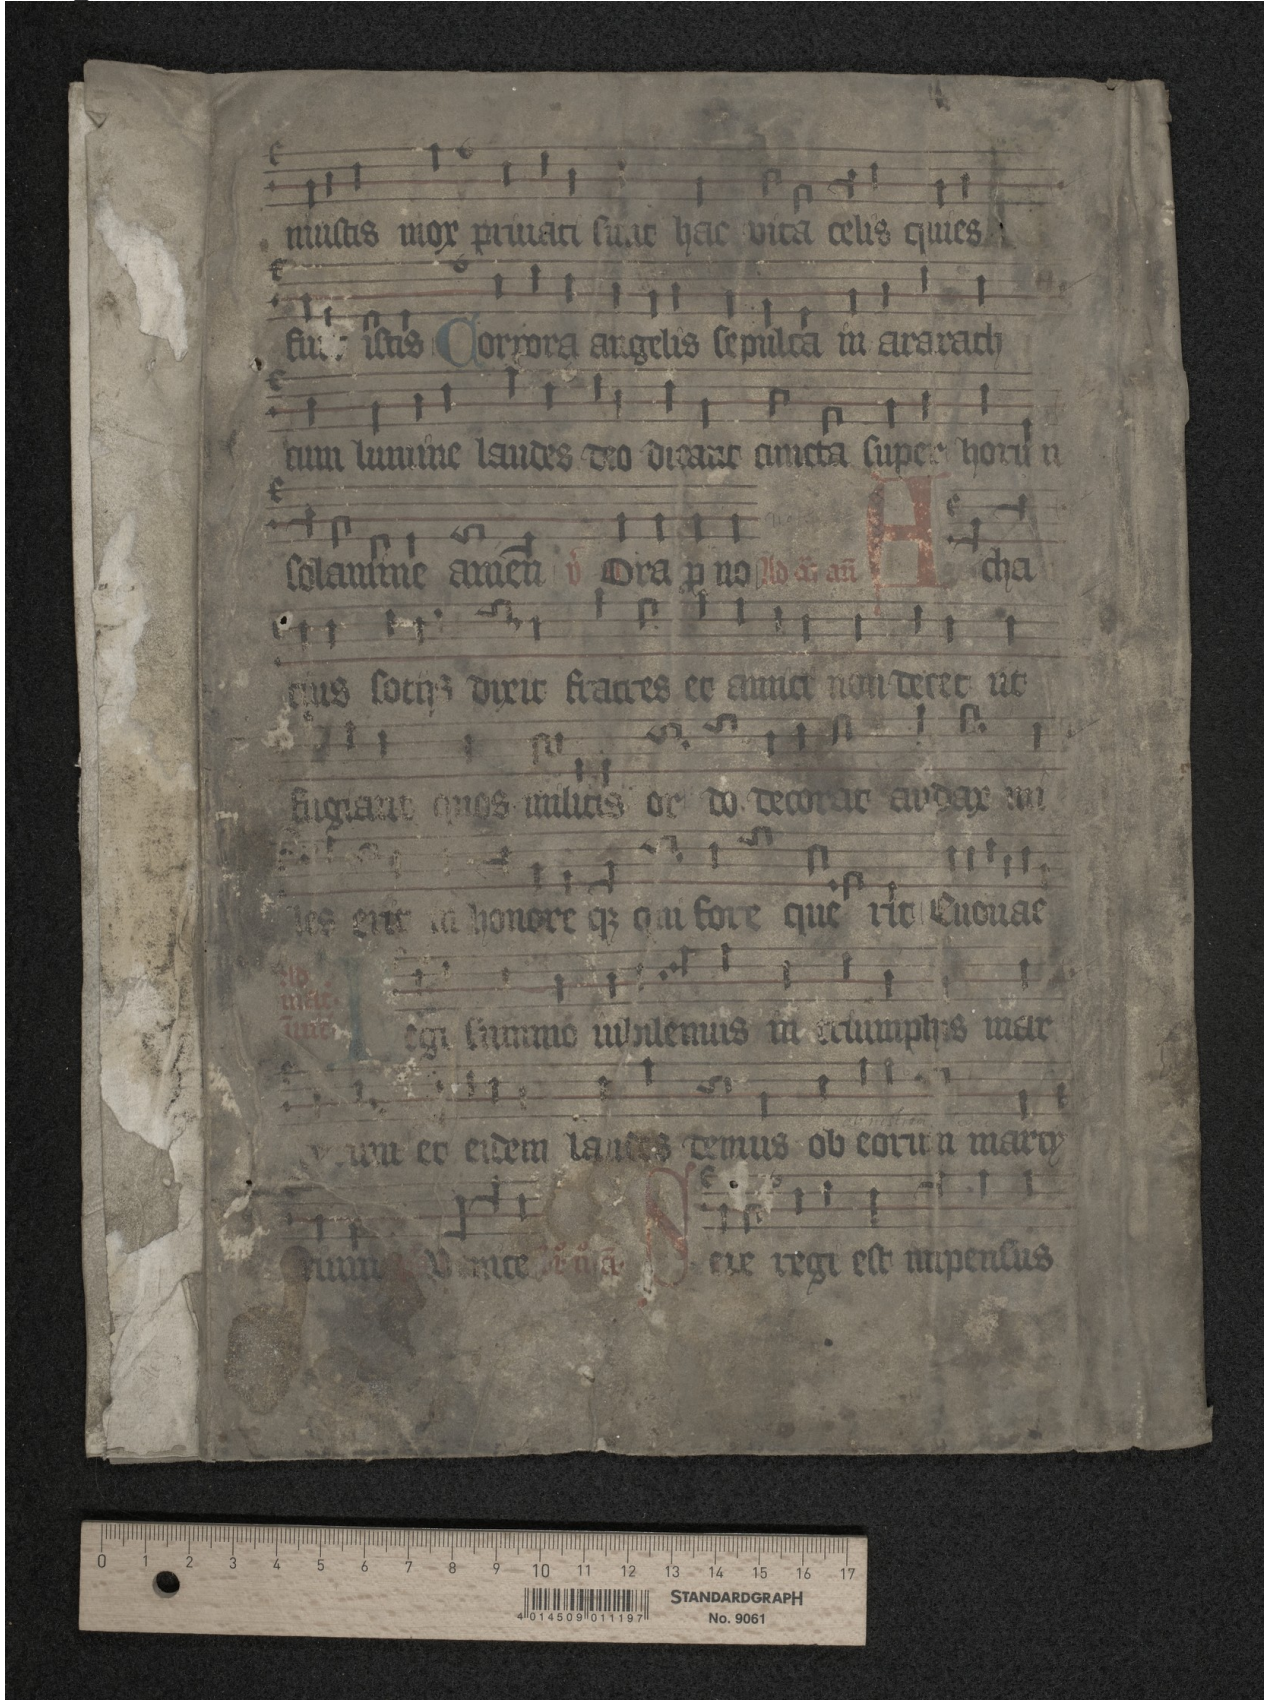 iniustis mox priuati sunt hac vita celis quies
sunt istis Corpora angelis sepulta in ararach
cum lumine laudes deo dicant cuncta super horum
solamine amen v Ora p no Ad ań Acha
cius sociisqꝫ dixit fratres et amici non decet ut
fugiant quos militis or do decorat audax mi
les erit in honore qꝫ qui fore que rit Euouae
Regi summo iubilemus in triumphis mar
tirum et eidem laudes demus ob eorum marty
rium Venite Nere regi est inpensus
0 1 2 3 4 5 6 7 8 9 10 11 12 13 14 15 16 17
4 014509 011197 STANDARDGRAPH
No. 9061